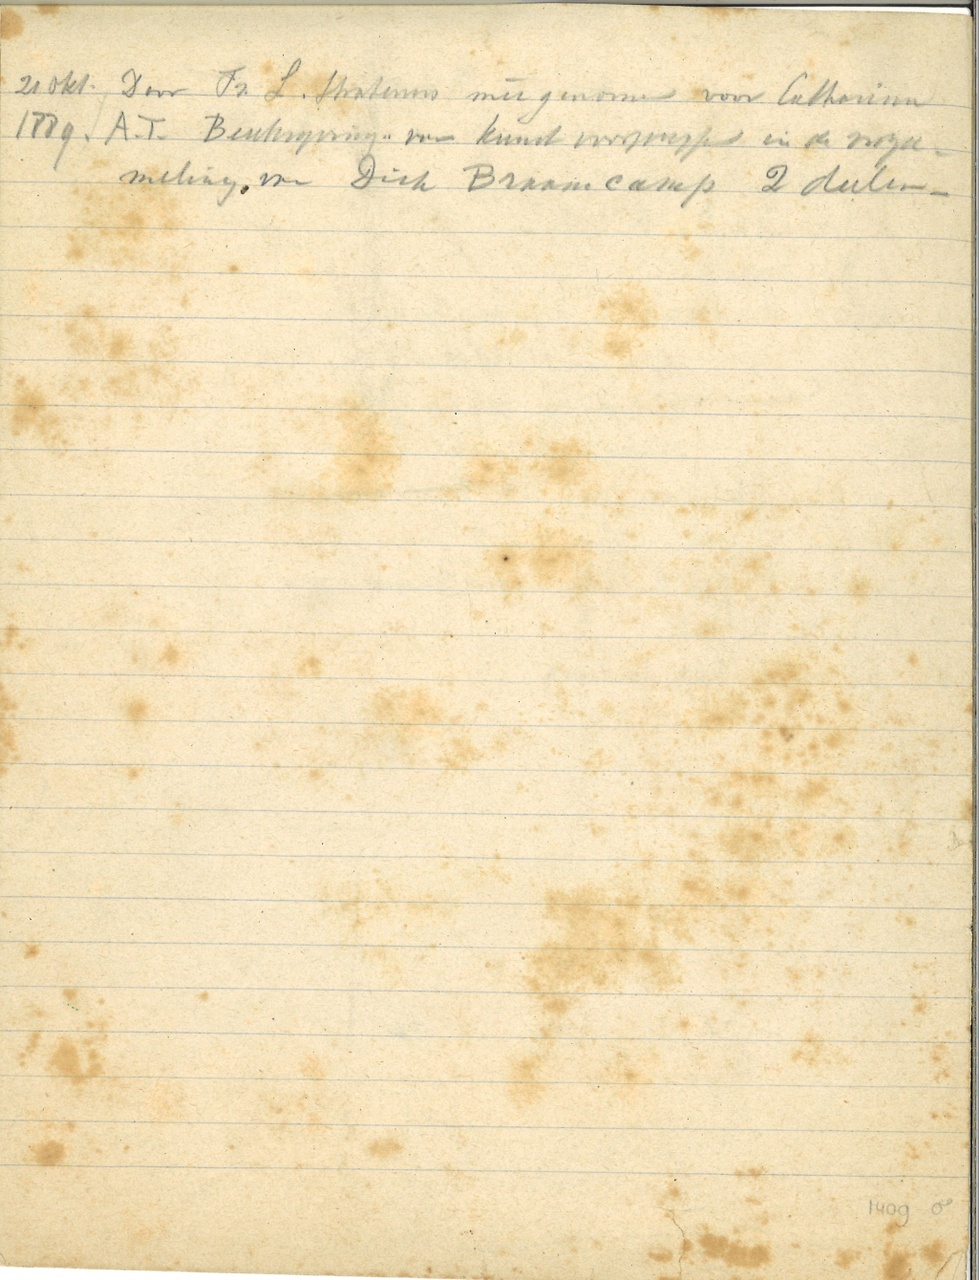 21 okt. Door Fr. L. Stratenus meegenomen voor Catharina
1889. A.T. Beschrijving van kunst voorwerpen in de verza-
meling van Dick Braamcamp 2 deelen_
1409